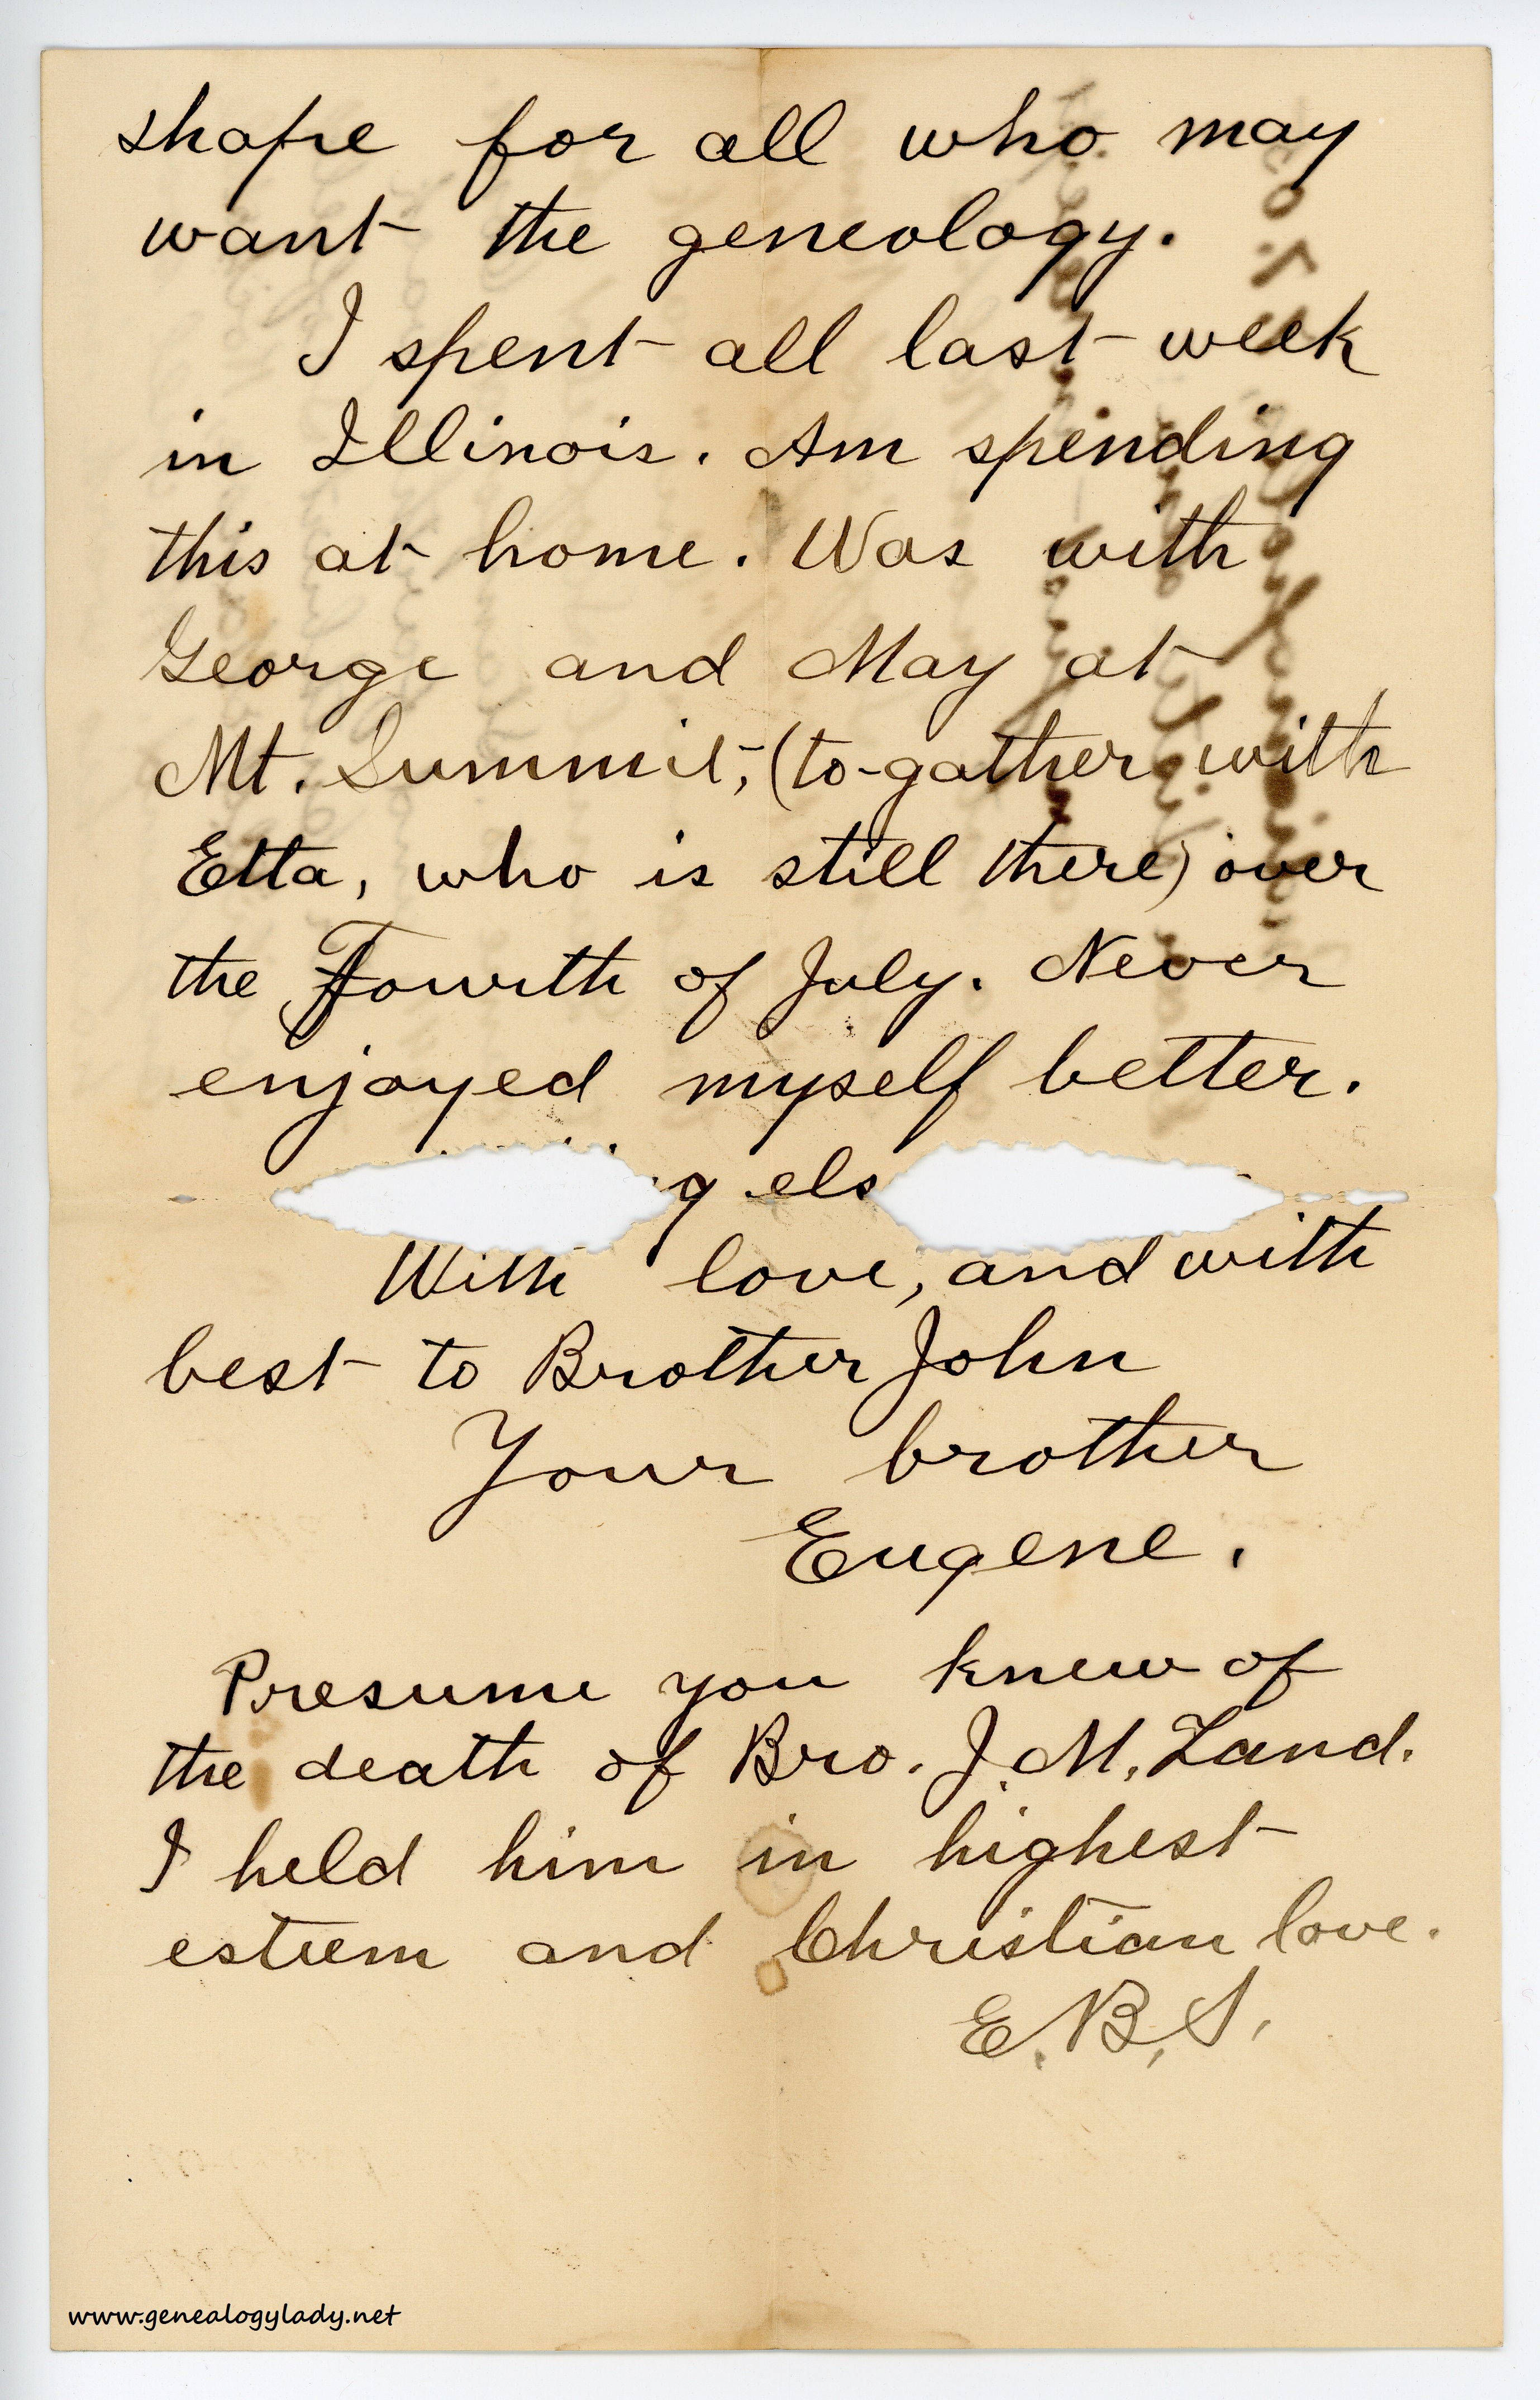 shape for all who may
want the geneology.
I spent all last week
in Illinois. Am spending
this at home. Was with
George and May at
Mt. Summit, (to-gather with
Etta, who is still there) over
the Fourth of July. Never
enjoyed myself better.
With love, and with
best to Brother John
Your brother
Eugene.
Presume you knew of
the death of Bro. J. M. Land.
I held him in highest
esteem and Christian love.
E. B. S.
www.genealogylady.net